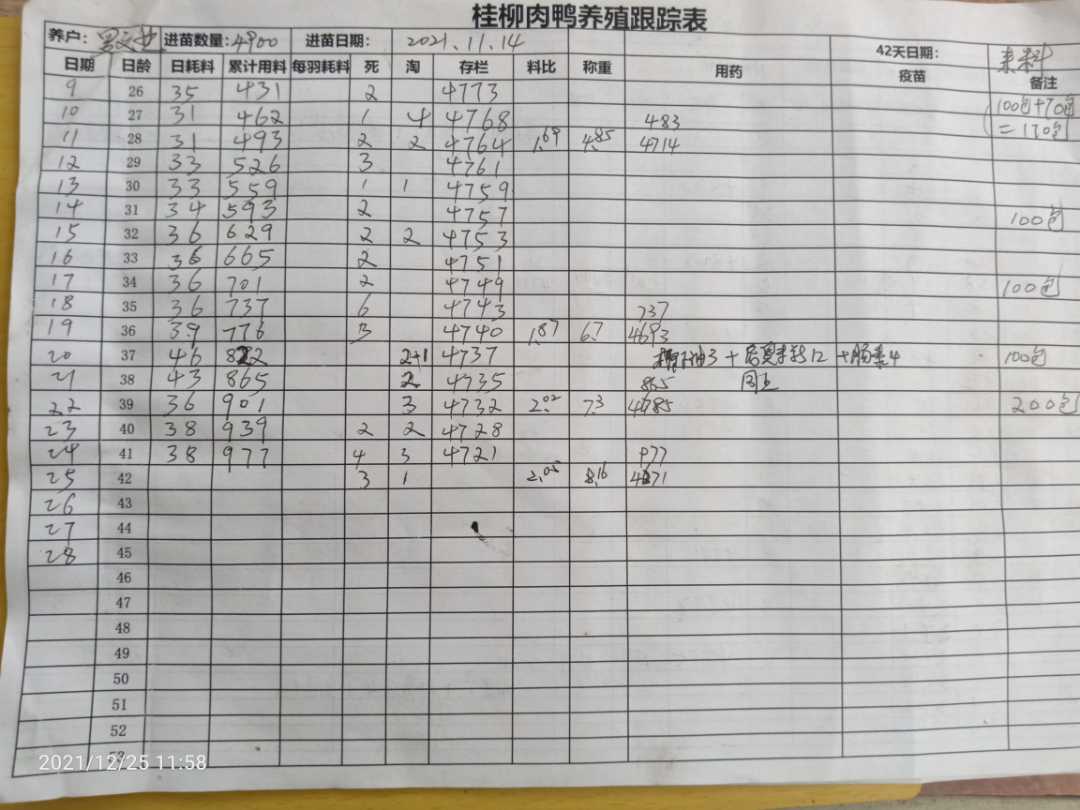 桂柳肉鸭养殖跟踪表
养户: 进苗数量:4900 进苗日期: 2021.11.14 42天日期: 来料
日期 日龄 日耗料 累计用料 每羽耗料 死 淘 存栏 料比 称重 用药 疫苗 备注
9 26 35 431 2 4773 100包+70包
10 27 31 462 1 4 4768 483 =170包
11 28 31 493 2 2 4764 1.69 4.85 4714
12 29 33 526 3 4761
13 30 33 559 1 1 4759
14 31 34 593 2 4757 100包
15 32 36 629 2 2 4753
16 33 36 665 2 4751
17 34 36 701 2 4749 100包
18 35 36 737 6 4743 737
19 36 39 776 3 4740 1.87 6.7 4693
20 37 46 822 2+1 4737 100包
21 38 43 865 2 4735 865 同上
22 39 36 901 3 4732 2.02 7.3 4785 200包
23 40 38 939 2 2 4728
24 41 38 977 4 3 4721 977
25 42 3 1 2.05 8.16 4671
26 43
27 44
28 45
46
47
48
49
50
51
52
53
2021/12/25 11:58